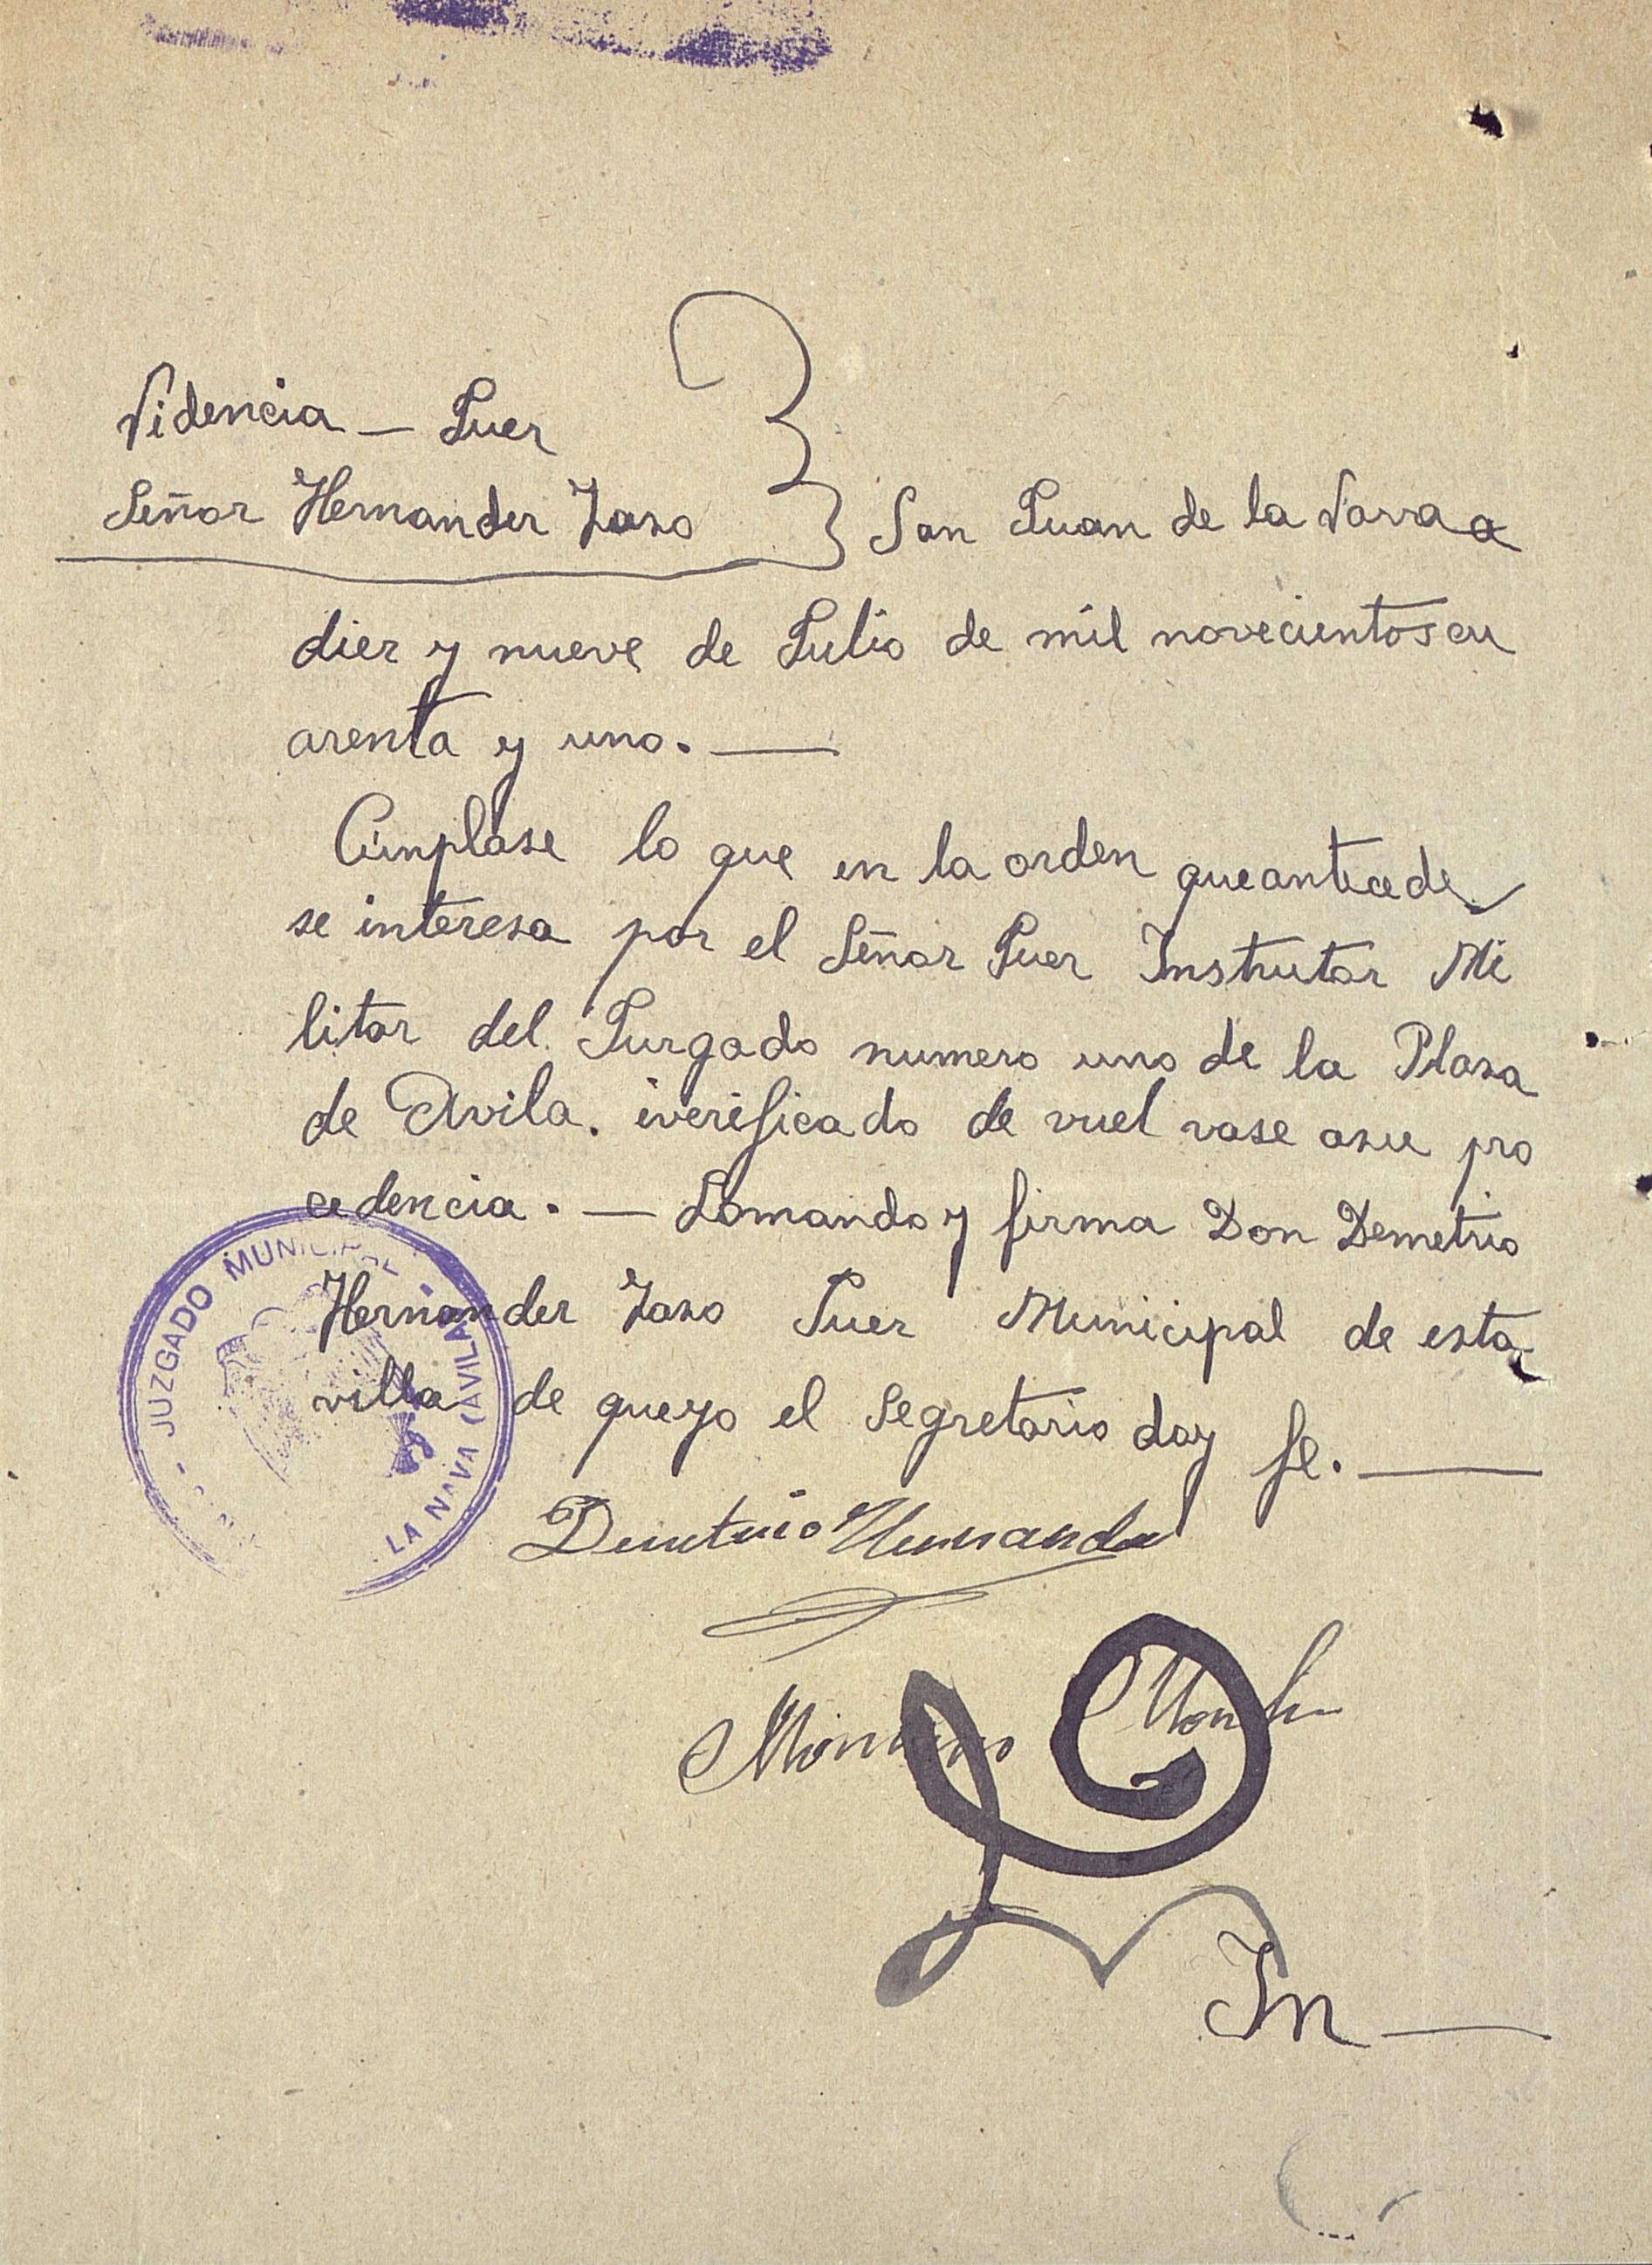 Videncia — Juez
Señor Hernandez Zazo } San Juan de la Nava a
diez y nueve de Julio de mil novecientos cu
arenta y uno. —
Cúmplase lo que en la orden que antecede
se interesa por el Señor Juez Instrutor Mi
litar del Juzgado numero uno de la Plaza
de Avila. iverificado de vuel vase asu pro
cedencia. — Lomando y firma Don Demetrio
Hernandez Zazo Juez Municipal de esta
villa de queyo el Segretario doy fe. —
Demetrio Hernandez
JUZGADO MUNICIPAL
LA NAVA (AVILA)